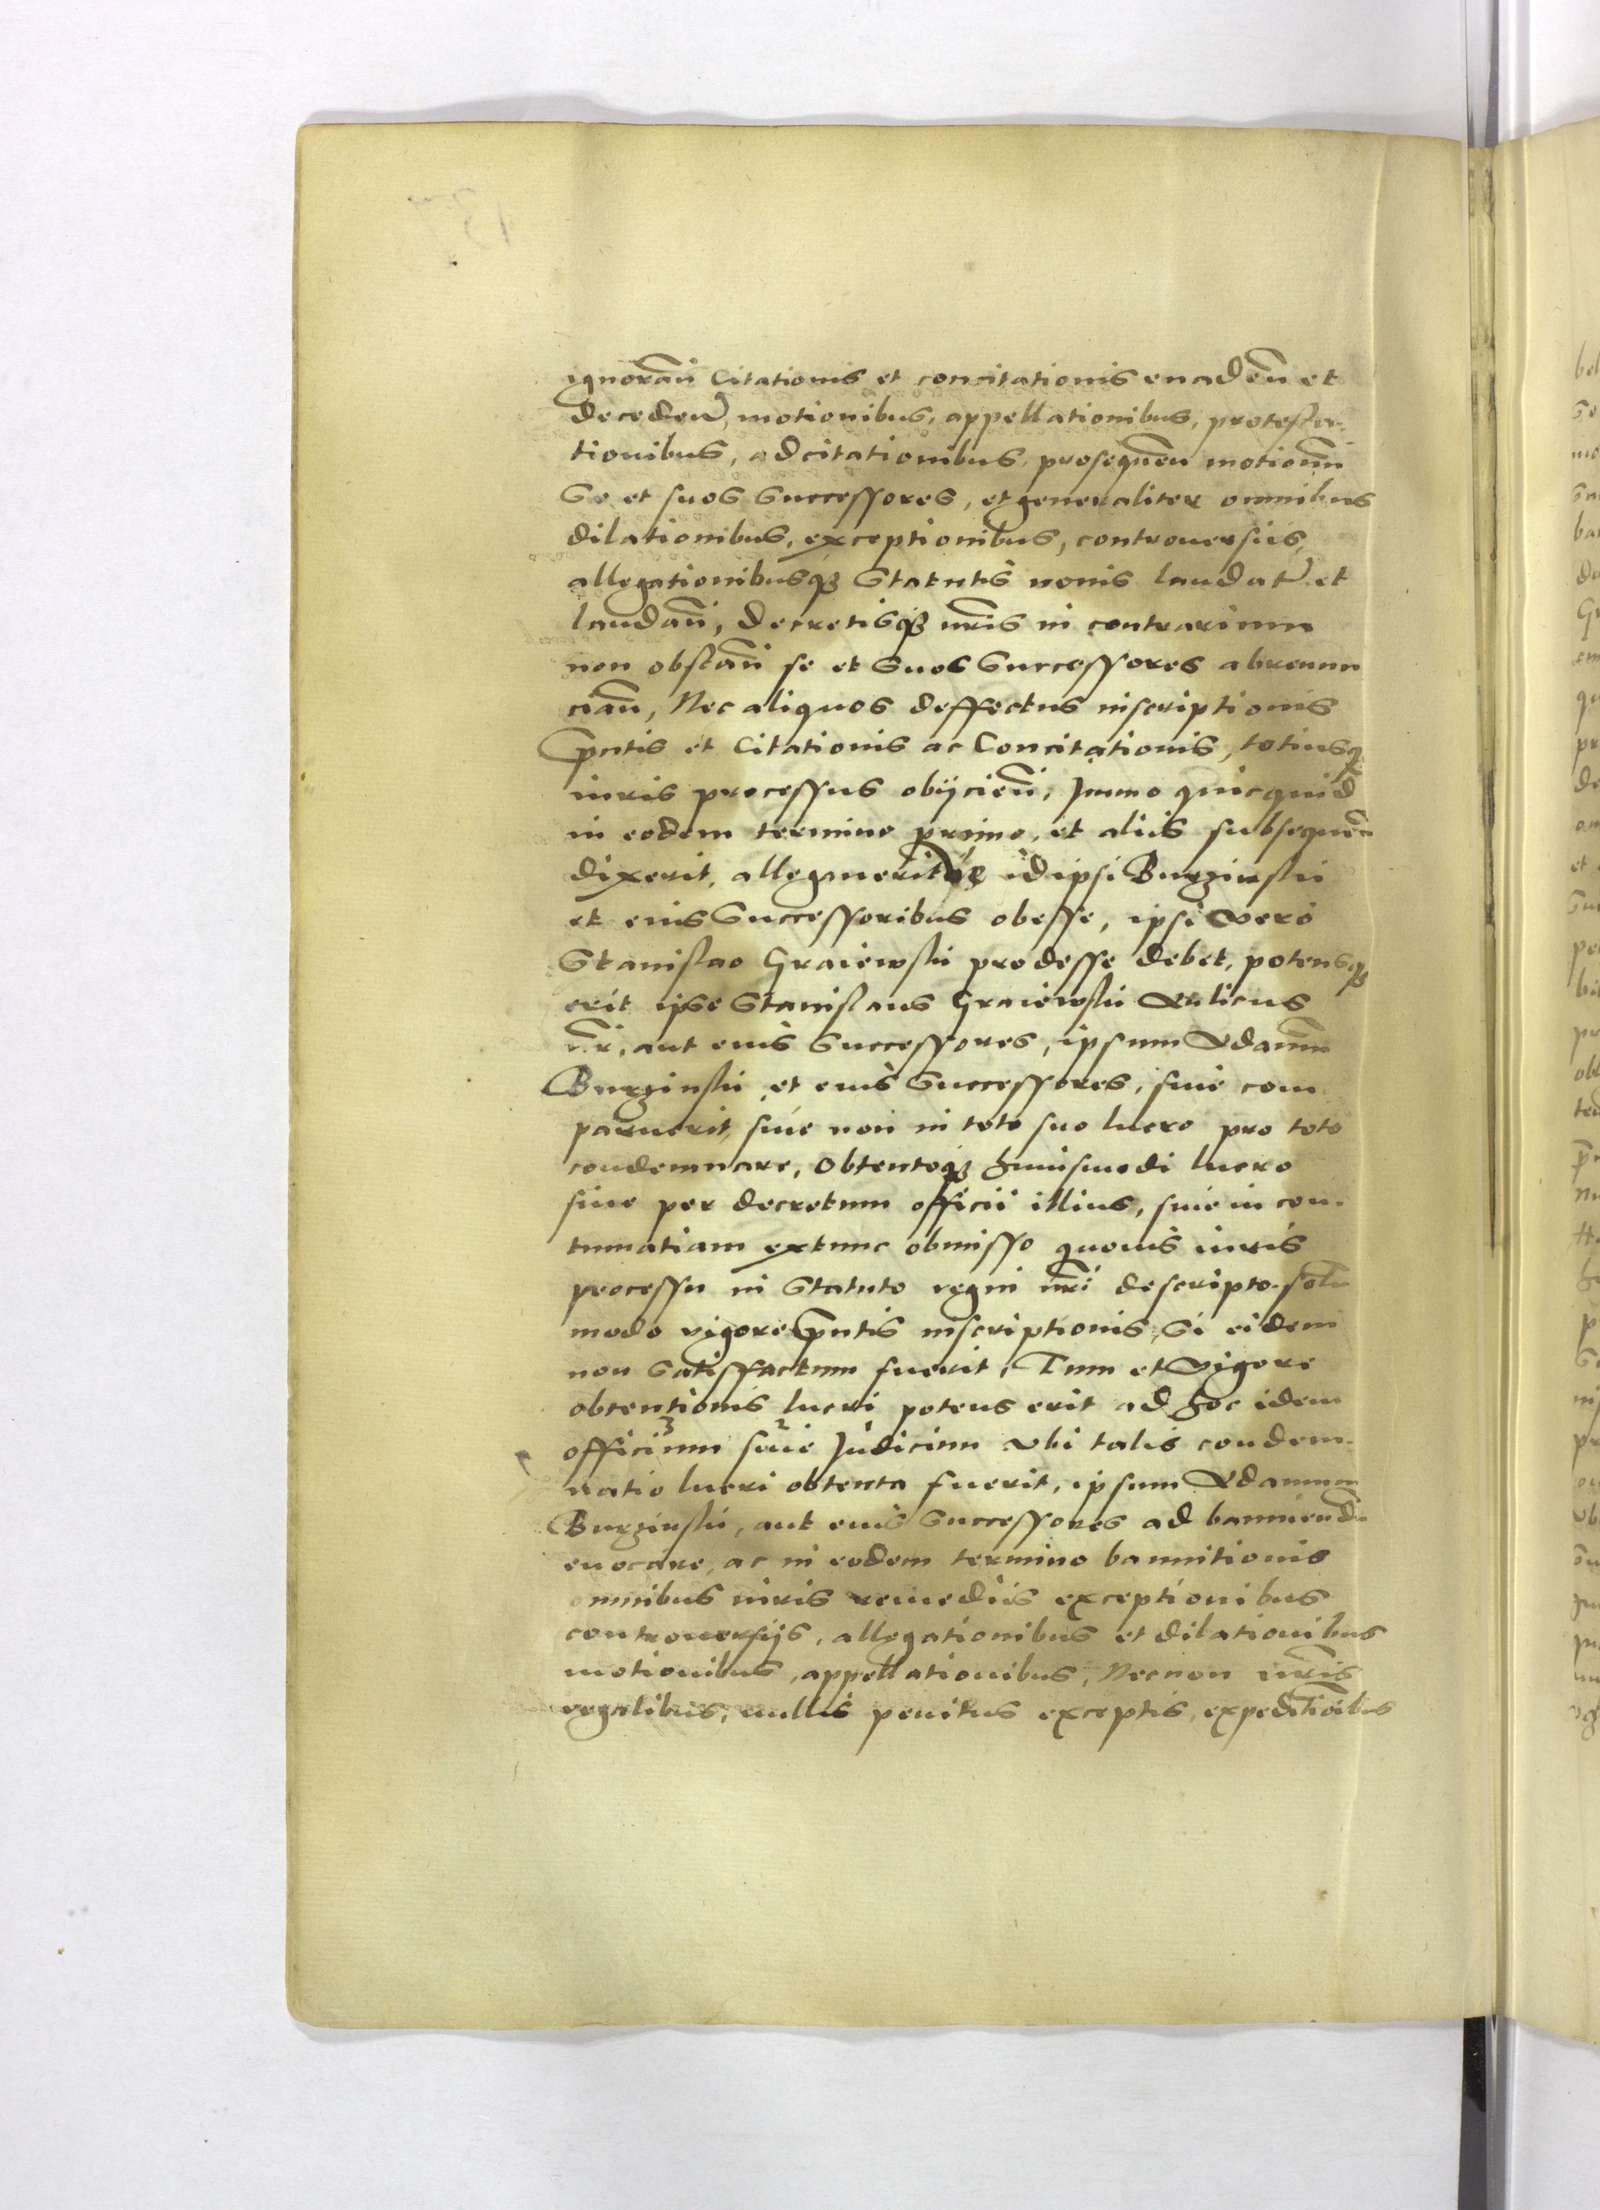 ignorān Citationis et concitationis euadeñ et
decedeñ, motionibus, appellationibus, protesta-
tionibus, adcitationibus prosequeñ motionū
Se et suos Successores, et generaliter omnibus
dilationibus, exceptionibus, controuersiis,
allegationibusqȝ Statutis nouis laudat̄ et
laudañ, decretisqȝ nr̄is in contrarium
non obstañ se et Suos Successores abrenun
ciañ, Nec aliquos deffectus inscriptionis
pn̄tis et Citationis ac Concitationis, totiusqȝ
iuris processus obijcieñ, Immo quicquid
in eodem termino primo, et aliis subsequeñ
dixerit, allegaueritue id ipsi Burzinskii
et eius Successoribus obesse, ipsi Vero
Stanislao Graiewskii prodesse debet, potensqȝ
erit ipse Stanislaus Graiewskii Aulicus
nr̄, aut eius Successores, ipsum Adamū
Burzinskii et eius Successores, siue com
paruerit, siue non in toto suo lucro pro toto
condemnare, Obtentoqȝ huiusmodi lucro
siue per decretum officii illius, siue in con-
tumatiam extunc obmisso quouis iuris
processu in Statuto regni nr̄i descripto. solū
modo vigore pn̄tis inscriptionis, Si eidem
non Satisffactum fuerit, Tum et Vigore
obtentionis lucri potens erit ad hoc idem
officium siue Judicium Vbi talis condem-
natio lucri obtenta fuerit, ipsum Adamum
Burzinskii, aut eius Successores ad banniendū
euocare, ac in eodem termino bannitionis
omnibus iuris remediis exceptionibus
controuersijs, allegationibus et dilationibus
motionibus, appellationibus, Necnon nr̄is
regalibus, nullis penitus exceptis, expeditioībus